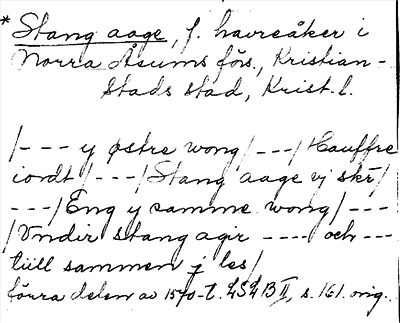 * Stang aage, f. havreåker i
Norra Åsums förs., Kristian-
stads stad, Krist. l.
/--- y østre wong/---/Hauffre
iordt/---/Stang aage vj skr/
---/Eng y samme wong/---
/Vndir stang agir ---- och ---
tiill sammen j les/
förra delen av 1570-t. LSLB II, s. 161. orig.